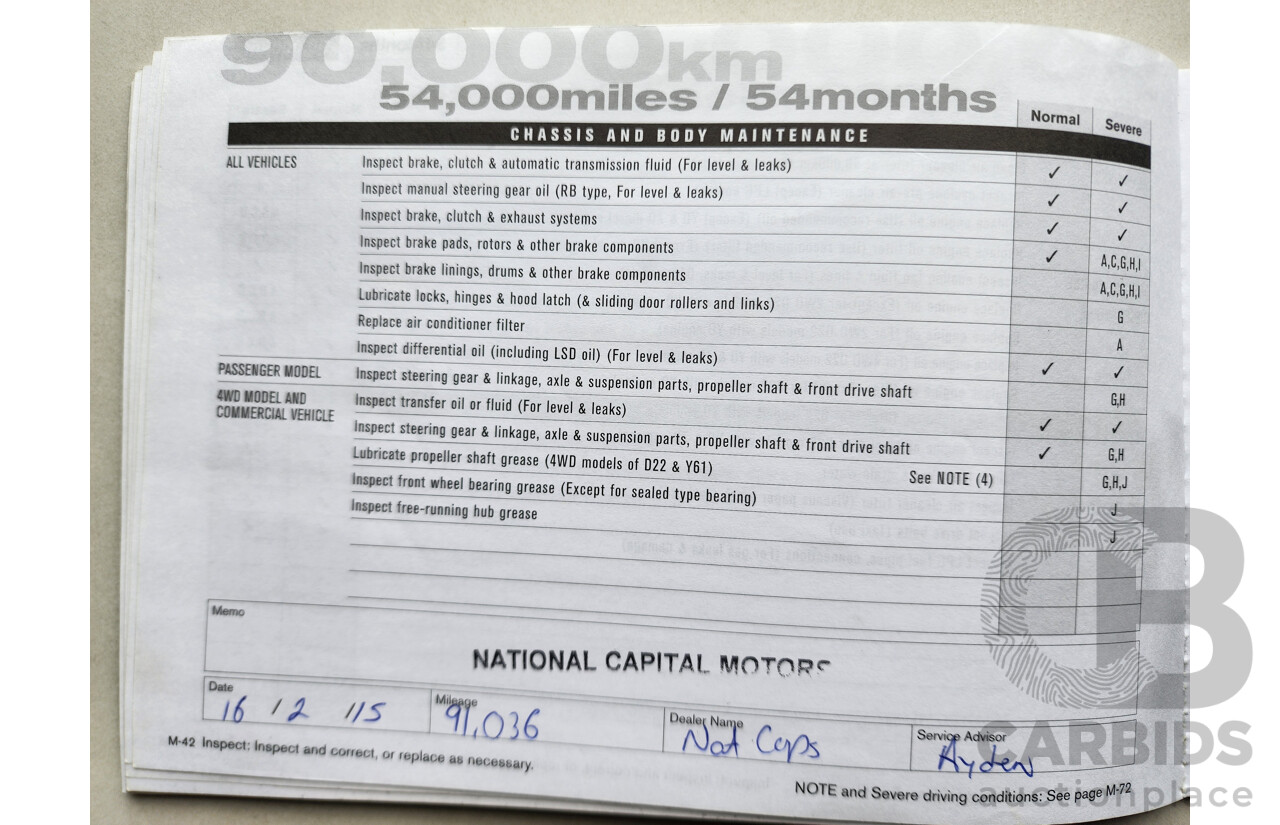 90,000km
54,000miles / 54months
Normal Severe
CHASSIS AND BODY MAINTENANCE
ALL VEHICLES Inspect brake, clutch & automatic transmission fluid (For level & leaks) ✓ ✓
Inspect manual steering gear oil (RB type, For level & leaks) ✓ ✓
Inspect brake, clutch & exhaust systems ✓ ✓
Inspect brake pads, rotors & other brake components ✓ A,C,G,H,I
Inspect brake linings, drums & other brake components A,C,G,H,I
Lubricate locks, hinges & hood latch (& sliding door rollers and links) G
Replace air conditioner filter A
Inspect differential oil (including LSD oil) (For level & leaks) ✓ ✓
PASSENGER MODEL Inspect steering gear & linkage, axle & suspension parts, propeller shaft & front drive shaft G,H
4WD MODEL AND Inspect transfer oil or fluid (For level & leaks) ✓ ✓
COMMERCIAL VEHICLE Inspect steering gear & linkage, axle & suspension parts, propeller shaft & front drive shaft ✓ G,H
Lubricate propeller shaft grease (4WD models of D22 & Y61) See NOTE (4) G,H,J
Inspect front wheel bearing grease (Except for sealed type bearing) J
Inspect free-running hub grease J
Memo
NATIONAL CAPITAL MOTORS
Date Mileage Dealer Name Service Advisor
16 / 2 / 15 91,036 Nat Caps Hyden
M-42 Inspect: Inspect and correct, or replace as necessary.
NOTE and Severe driving conditions: See page M-72
CB
CARBIDS
auctionplace